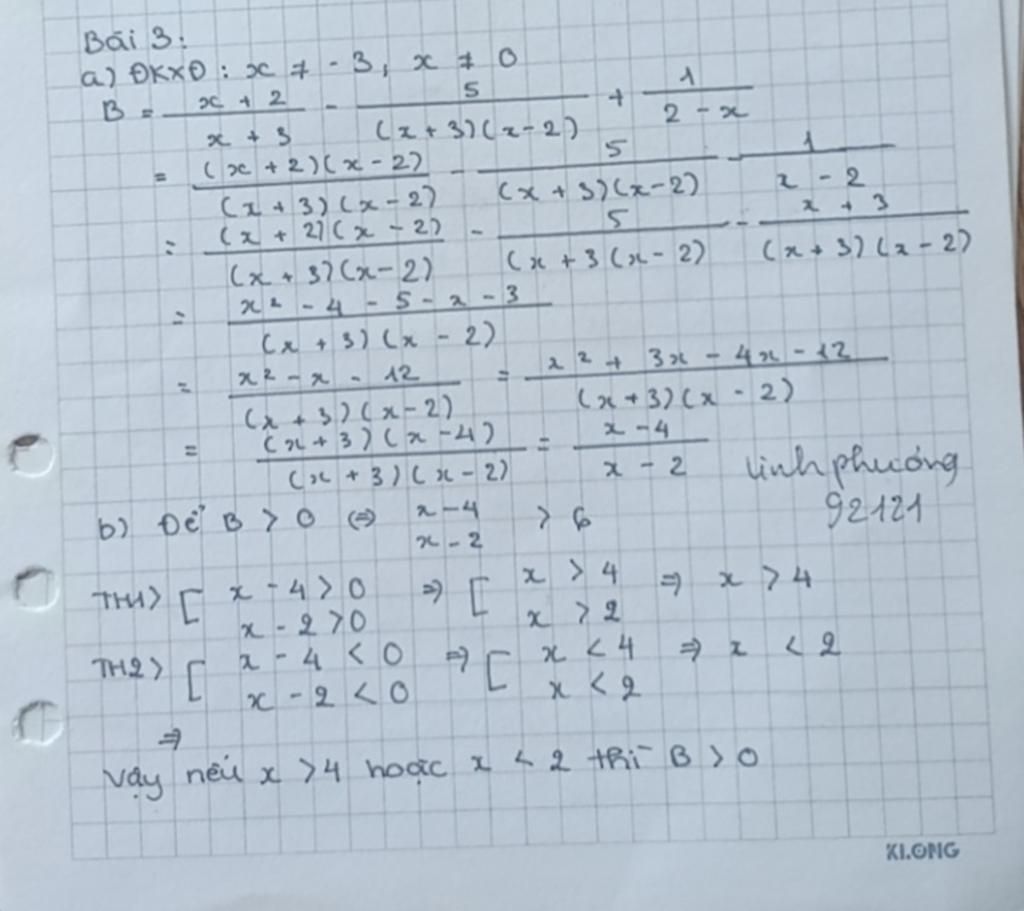 Bài 3:
a) ĐKXĐ: x ≠ -3, x ≠ 0
B = \frac{x + 2}{x + 3} - \frac{5}{(x + 3)(x - 2)} + \frac{1}{2 - x}
= \frac{(x + 2)(x - 2)}{(x + 3)(x - 2)} - \frac{5}{(x + 3)(x - 2)} - \frac{1}{x - 2}
= \frac{(x + 2)(x - 2)}{(x + 3)(x - 2)} - \frac{5}{(x + 3(x - 2)} - \frac{x + 3}{(x + 3)(x - 2)}
= \frac{x² - 4 - 5 - x - 3}{(x + 3)(x - 2)}
= \frac{x² - x - 12}{(x + 3)(x - 2)} = \frac{x² + 3x - 4x - 12}{(x + 3)(x - 2)}
= \frac{(x + 3)(x - 4)}{(x + 3)(x - 2)} = \frac{x - 4}{x - 2}
linhphuóng
92121
b) Để B > 0 (=) \frac{x - 4}{x - 2} > 6
TH1> [ x - 4 > 0 => [ x > 4 => x > 4
x - 2 > 0 x > 2
TH2> [ x - 4 < 0 => [ x < 4 => x < 2
x - 2 < 0 x < 2
=>
Vậy nếu x > 4 hoặc x < 2 thì B > 0
KLONG